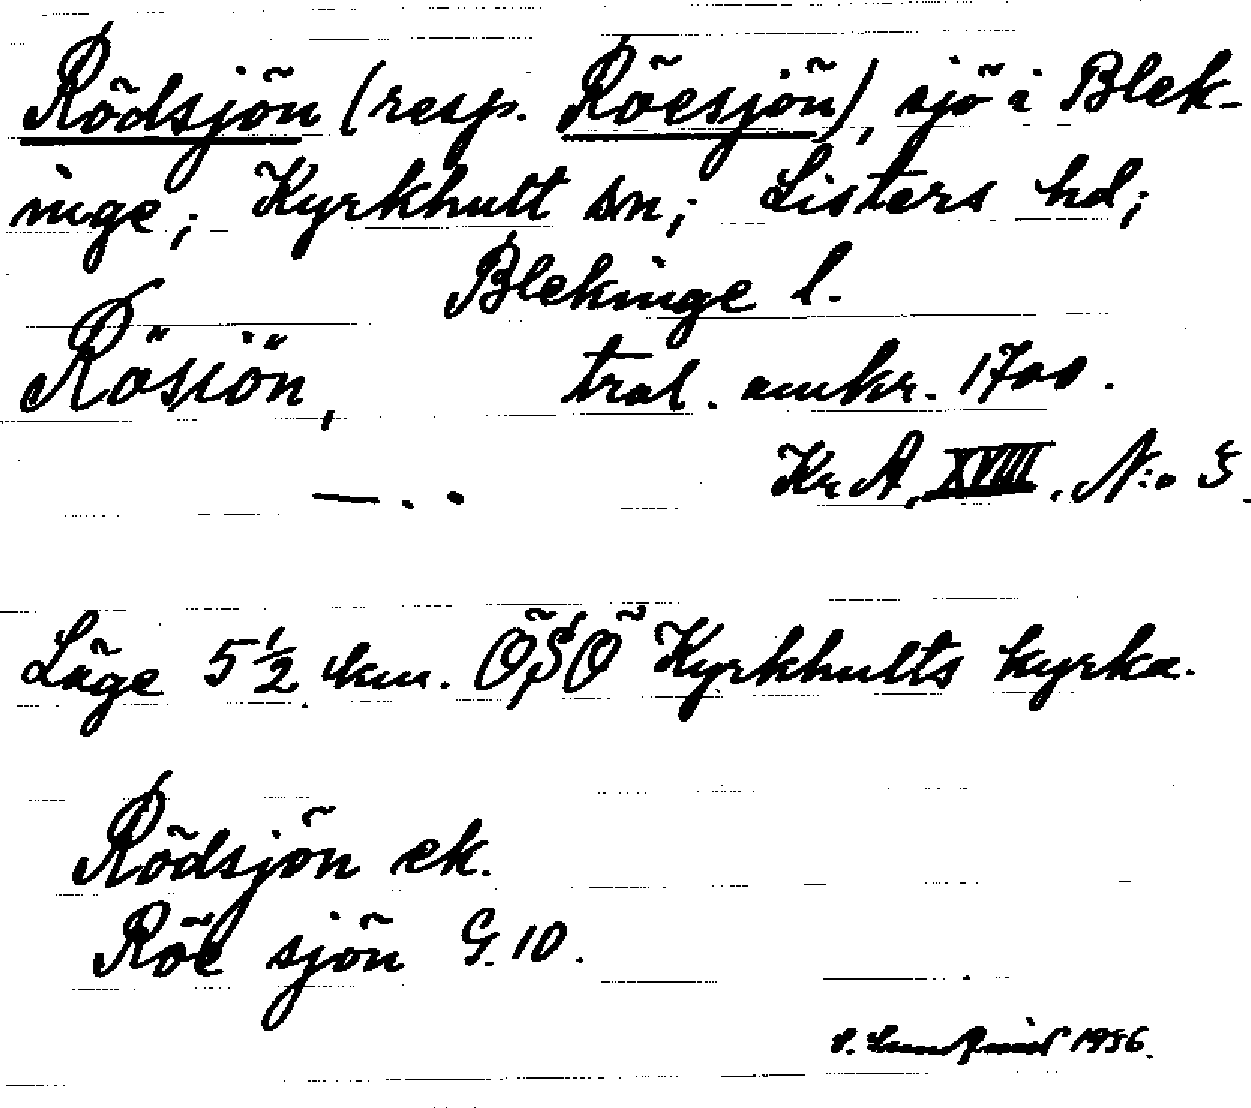 Rödsjön (resp. Röesjön), sjö i Blek-
inge; Kyrkhult sn; Listers hd;
Blekinge l.
Rösiön, tral. omkr. 1700.
—. . Kr. A. XVIII. N:o 5.
Läge 5 1/2 km. ÖSÖ Kyrkhults kyrka.
Rödsjön ek.
Röe sjön G. 10.
1956.